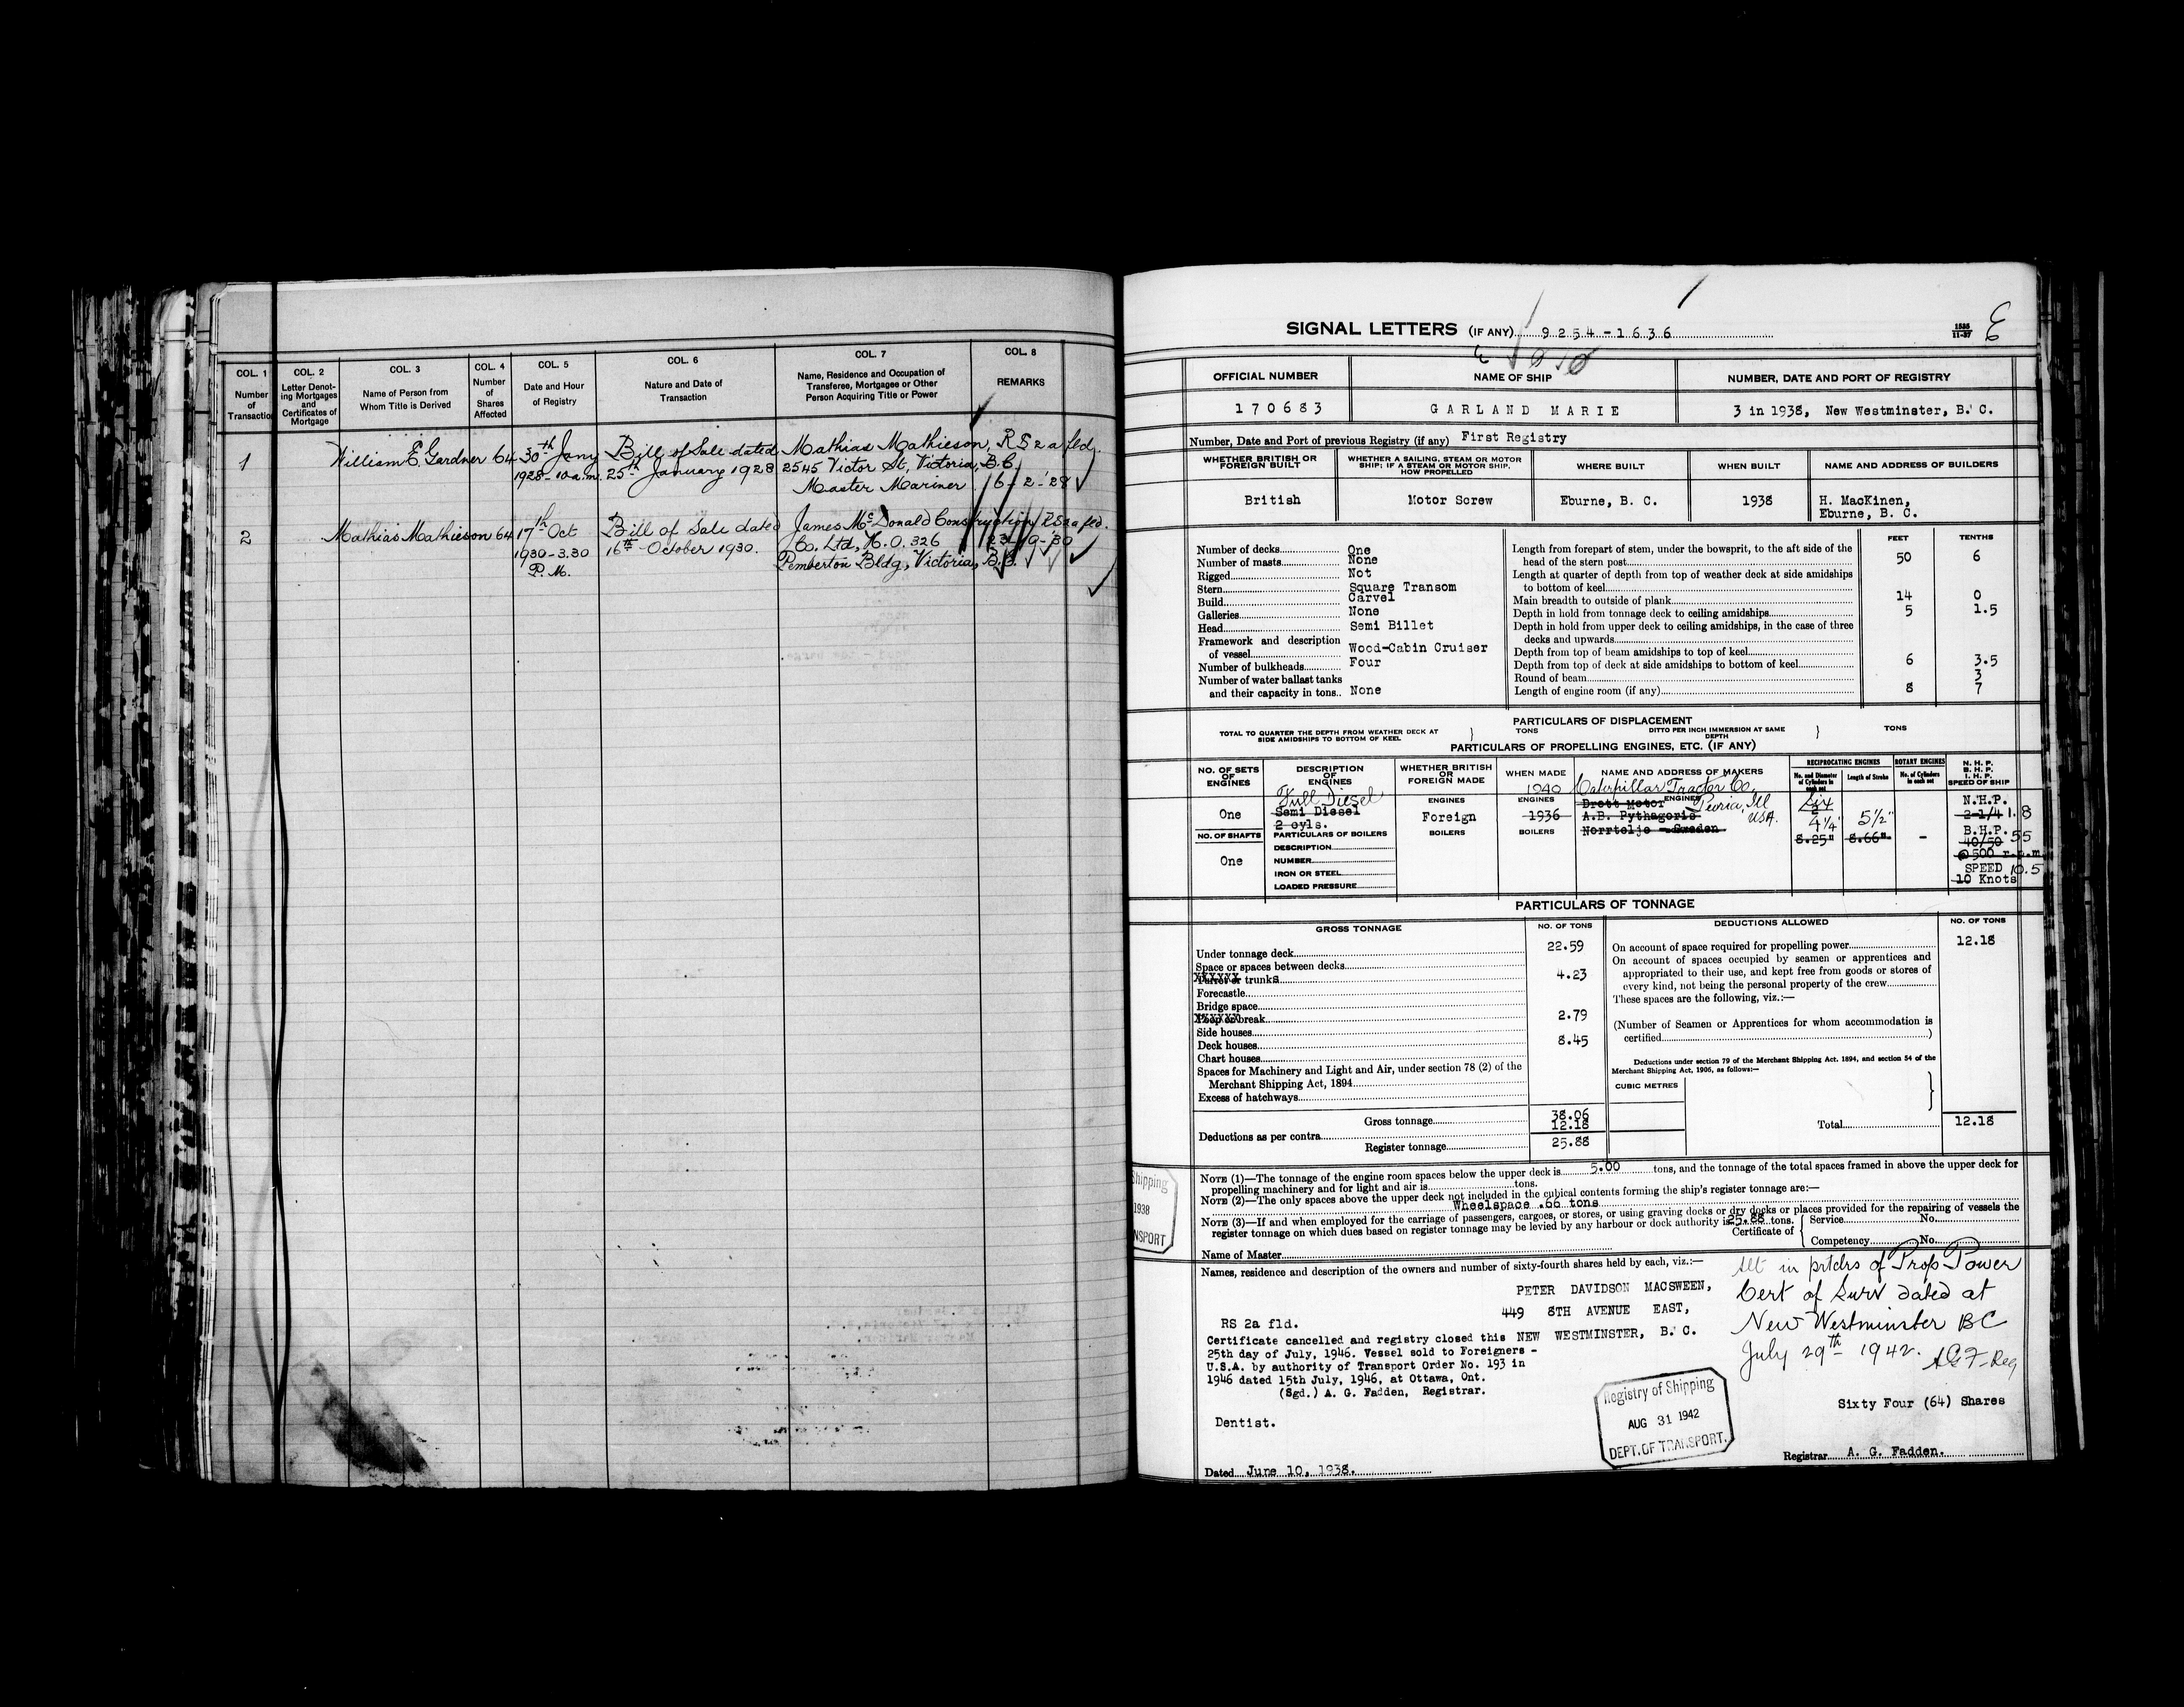 COL. 1
Number
of
Transaction
COL. 2
Letter Denot-
ing Mortgages
and
Certificates of
Mortgage
COL. 3
Name of Person from
Whom Title is Derived
COL. 4
Number
of
Shares
Affected
COL. 5
Date and Hour
of Registry
COL. 6
Nature and Date of
Transaction
COL. 7
Name, Residence and Occupation of
Transferee, Mortgagee or Other
Person Acquiring Title or Power
COL. 8
REMARKS
1 William E. Gardner 64 30th Jany Bill of Sale dated Mathias Mathieson, RS 2a fld.
1928-10 a.m. 25th January 1928 2545 Victor St, Victoria, B.C.
Master Mariner 6-2-'28
2 Mathias Mathieson 64 17th Oct Bill of Sale dated James McDonald Construction RS 2a fld.
1930-3.30 16th October 1930. Co. Ltd, H.O. 326 23 /9-'30
P.M. Pemberton Bldg, Victoria, B.C.
SIGNAL LETTERS (IF ANY) 9254-1636
1535
11-37
E
OFFICIAL NUMBER NAME OF SHIP NUMBER, DATE AND PORT OF REGISTRY
170683 GARLAND MARIE 3 in 1938, New Westminster, B. C.
Number, Date and Port of previous Registry (if any) First Registry
WHETHER BRITISH OR
FOREIGN BUILT
WHETHER A SAILING, STEAM OR MOTOR
SHIP; IF A STEAM OR MOTOR SHIP,
HOW PROPELLED
WHERE BUILT
WHEN BUILT
NAME AND ADDRESS OF BUILDERS
British Motor Screw Eburne, B. C. 1938 H. MacKinen,
Eburne, B. C.
Number of decks One
Number of masts None
Rigged Not
Stern Square Transom
Build Carvel
Galleries None
Head Semi Billet
Framework and description
of vessel Wood-Cabin Cruiser
Number of bulkheads Four
Number of water ballast tanks
and their capacity in tons.. None
FEET TENTHS
Length from forepart of stem, under the bowsprit, to the aft side of the
head of the stern post 50 6
Length at quarter of depth from top of weather deck at side amidships
to bottom of keel
Main breadth to outside of plank 14 0
Depth in hold from tonnage deck to ceiling amidships 5 1.5
Depth in hold from upper deck to ceiling amidships, in the case of three
decks and upwards
Depth from top of beam amidships to top of keel
Depth from top of deck at side amidships to bottom of keel 6 3.5
Round of beam 3
Length of engine room (if any) 8 7
PARTICULARS OF DISPLACEMENT
TOTAL TO QUARTER THE DEPTH FROM WEATHER DECK AT
SIDE AMIDSHIPS TO BOTTOM OF KEEL
TONS
DITTO PER INCH IMMERSION AT SAME
DEPTH
TONS
PARTICULARS OF PROPELLING ENGINES, ETC. (IF ANY)
NO. OF SETS
OF
ENGINES
DESCRIPTION
OF
ENGINES
WHETHER BRITISH
OR
FOREIGN MADE
WHEN MADE
NAME AND ADDRESS OF MAKERS
RECIPROCATING ENGINES
No. and Diameter
of Cylinders in
each set
Length of Stroke
ROTARY ENGINES
No. of Cylinders
in each set
N. H. P.
B. H. P.
I. H. P.
SPEED OF SHIP
Full Diesel
1940 Caterpillar Tractor Co.
Peoria, Ill
USA.
One Semi Diesel
2 cyls.
ENGINES
Foreign
ENGINES
1936
ENGINES
Drott Motor
A.B. Pythagoris
Norrtelje - Sweden
Six
4 1/4" 5 1/2"
8.25" 8.66" -
N.H.P.
2-1/4 1.8
B.H.P.
40/50 55
@ 500 r.p.m
SPEED 10.5
10 Knots
NO. OF SHAFTS
One
PARTICULARS OF BOILERS
BOILERS
BOILERS
DESCRIPTION
NUMBER
IRON OR STEEL
LOADED PRESSURE
PARTICULARS OF TONNAGE
GROSS TONNAGE NO. OF TONS
Under tonnage deck 22.59
Space or spaces between decks
Turret or trunks 4.23
Forecastle
Bridge space
Poop or break 2.79
Side houses
Deck houses 8.45
Chart houses
Spaces for Machinery and Light and Air, under section 78 (2) of the
Merchant Shipping Act, 1894
Excess of hatchways
Gross tonnage 38.06
Deductions as per contra 12.18
Register tonnage 25.88
DEDUCTIONS ALLOWED NO. OF TONS
On account of space required for propelling power 12.18
On account of spaces occupied by seamen or apprentices and
appropriated to their use, and kept free from goods or stores of
every kind, not being the personal property of the crew
These spaces are the following, viz.:—
(Number of Seamen or Apprentices for whom accommodation is
certified)
Deductions under section 79 of the Merchant Shipping Act, 1894, and section 54 of the
Merchant Shipping Act, 1906, as follows:—
CUBIC METRES
Total 12.18
NOTE (1)—The tonnage of the engine room spaces below the upper deck is 5.00 tons, and the tonnage of the total spaces framed in above the upper deck for
propelling machinery and for light and air is tons.
NOTE (2)—The only spaces above the upper deck not included in the cubical contents forming the ship's register tonnage are:—
Wheelspace .66 tons
NOTE (3)—If and when employed for the carriage of passengers, cargoes, or stores, or using graving docks or dry docks or places provided for the repairing of vessels the
register tonnage on which dues based on register tonnage may be levied by any harbour or dock authority is 25.88 tons.
Certificate of
Service No.
Competency No.
Name of Master
Shipping
1938
NSPORT
Names, residence and description of the owners and number of sixty-fourth shares held by each, viz.:—
PETER DAVIDSON MACSWEEN,
449 8TH AVENUE EAST,
NEW WESTMINSTER, B. C.
RS 2a fld.
Certificate cancelled and registry closed this
25th day of July, 1946. Vessel sold to Foreigners -
U.S.A. by authority of Transport Order No. 193 in
1946 dated 15th July, 1946, at Ottawa, Ont.
(Sgd.) A. G. Fadden, Registrar.
Dentist.
Alt in prtclrs of Prop Power
Cert of Surv dated at
New Westminster BC
July 29th 1942. AGF-Reg
Registry of Shipping
AUG 31 1942
DEPT. OF TRANSPORT.
Sixty Four (64) Shares
Dated June 10, 1938.
Registrar A. G. Fadden.